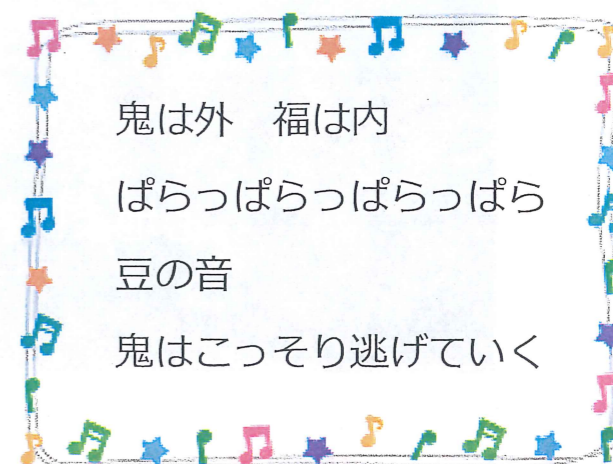 鬼は外　福は内
ぱらっぱらっぱらっぱら
豆の音
鬼はこっそり逃げていく